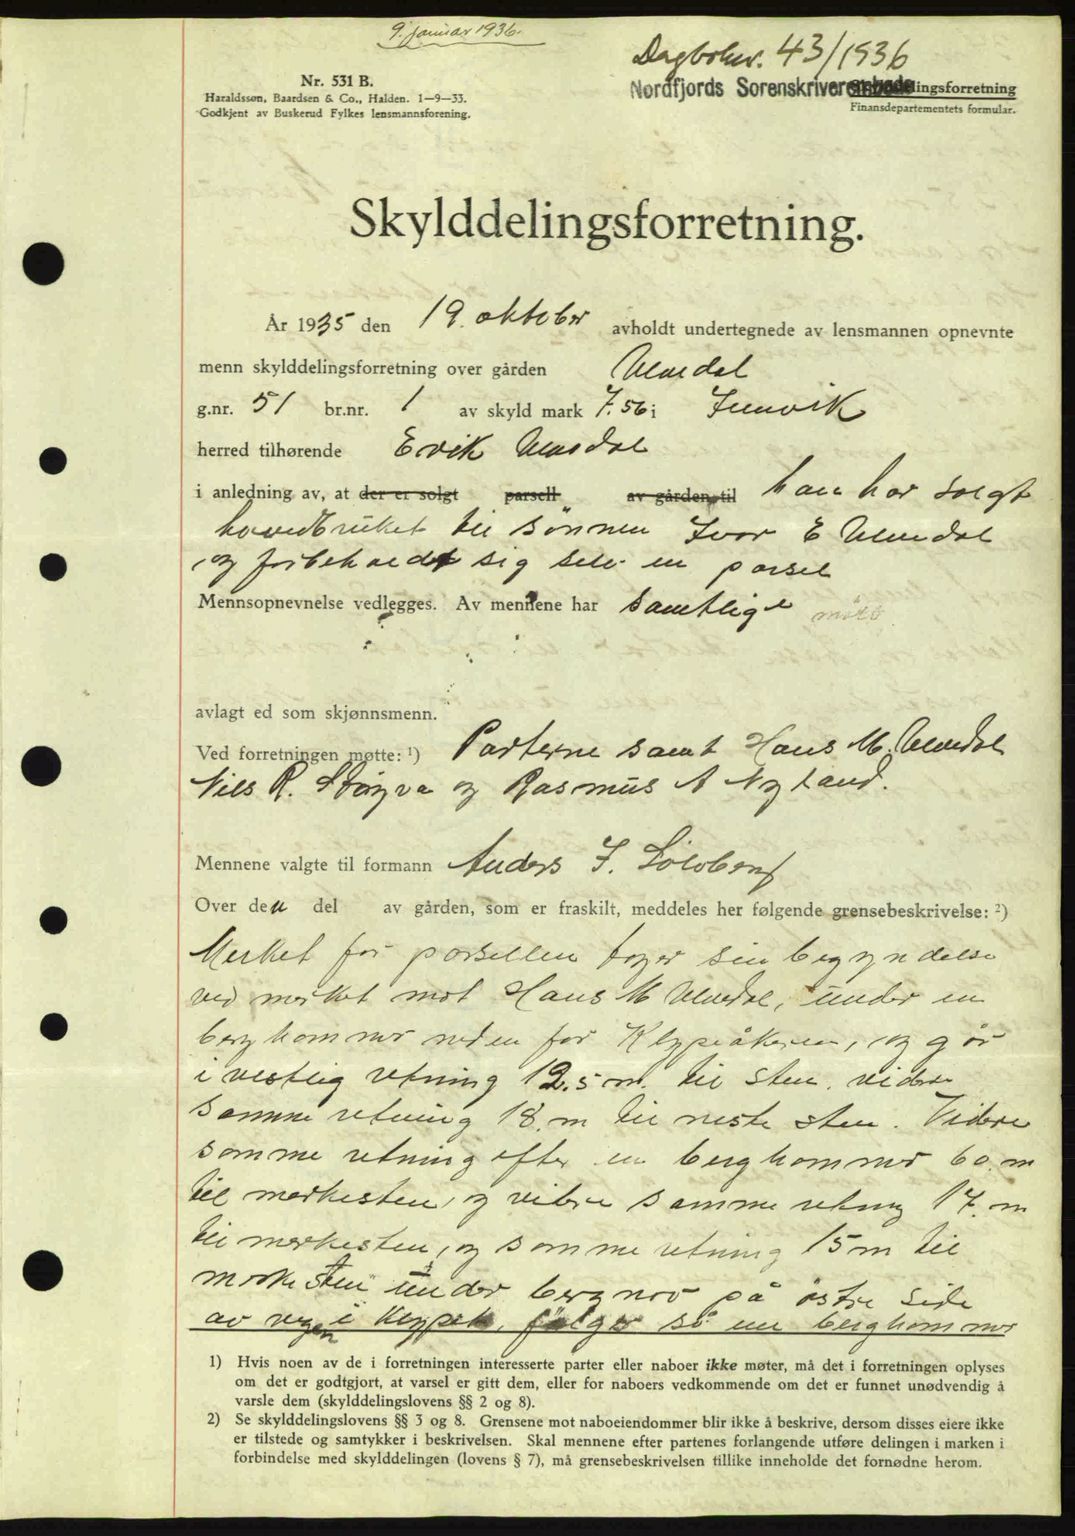 9. januar 1936.
Dagboknr. 43/1936
Nordfjords Sorenskriverembede
Nr. 531 B.
Haraldssøn, Baardsen & Co., Halden. 1—9—33.
Godkjent av Buskerud Fylkes lensmannsforening.
lingsforretning
Finansdepartementets formular.
Skylddelingsforretning.
År 1935 den 19. oktober avholdt undertegnede av lensmannen opnevnte
menn skylddelingsforretning over gården Ulvedal
g.nr. 51 br.nr. 1 av skyld mark 7.56 i Innvik
herred tilhørende Erik Ulvedal
i anledning av, at der er solgt parsell av gården til han har solgt
hovedbruket til sønnen Ivar E Ulvedal
og forbeholdt sig selv en parsel
Mennsopnevnelse vedlegges. Av mennene har samtlige møtt
avlagt ed som skjønnsmenn.
Ved forretningen møtte: ¹) Parterne samt Hans M. Ulvedal
Nils R. Støyva og Rasmus A Nyland.
Mennene valgte til formann Anders J. Solvberg
Over den del av gården, som er fraskilt, meddeles her følgende grensebeskrivelse: ²)
Merket for parsellen tager sin begyndelse
ved merket mot Hans M Ulvedal, under en
berghammer neden for Klypeåkeren, og går
i vestlig retning 12.5 m. til sten. videre
samme retning 18. m til neste sten. Videre
samme retning efter en berghammer 60. m
til merkesten, og videre samme retning 17. m
til merkesten, og samme retning 15 m til
merkesten under bergnov på østre side
av vegen i Klypet, følger så en berghammer
1) Hvis noen av de i forretningen interesserte parter eller naboer ikke møter, må det i forretningen oplyses
om det er godtgjort, at varsel er gitt dem, eller for naboers vedkommende om det er funnet unødvendig å
varsle dem (skylddelingslovens §§ 2 og 8).
2) Se skylddelingslovens §§ 3 og 8. Grensene mot naboeiendommer blir ikke å beskrive, dersom disses eiere ikke
er tilstede og samtykker i beskrivelsen. Skal mennene efter partenes forlangende utføre delingen i marken i
forbindelse med skylddelingen (lovens § 7), må grensebeskrivelsen tillike inneholde det fornødne herom.